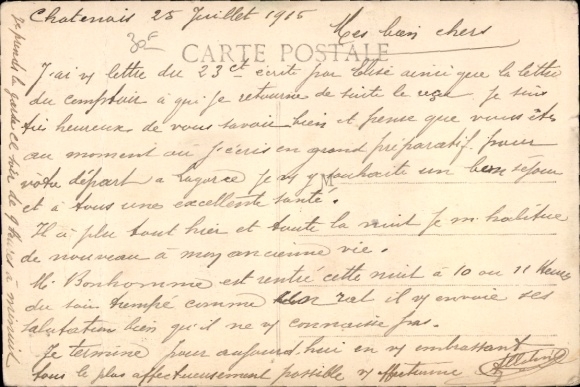 Chatenois 25 Juillet 1915
Mes bien chers
30c
CARTE POSTALE
J'ai v/ lettre du 23 ct écrite par Elisé ainsi que la lettre
du comptoir à qui je retourne de suite le reçu. Je suis
très heureux de vous savoir bien et pense que vous êtes
au moment ou j'écris en grand préparatif pour
vôtre départ à Lagorce Je v/ y souhaite un bon séjour
et à tous une excellente santé.
Il à plu tout hier et toute la nuit Je m'habitue
de nouveau à moy ancienne vie.
M. Bonhomme est rentré cette nuit à 10 ou 11 Heures
du soir trempé comme un rat il v/ envoie ses
salutation bien qu'il ne v/ connaisse pas.
Je termine pour aujourd'hui en v/ embrassant
tous le plus affectueusement possible v/ affectionné
Je prends la garde ce soir de 9 heures à minuit